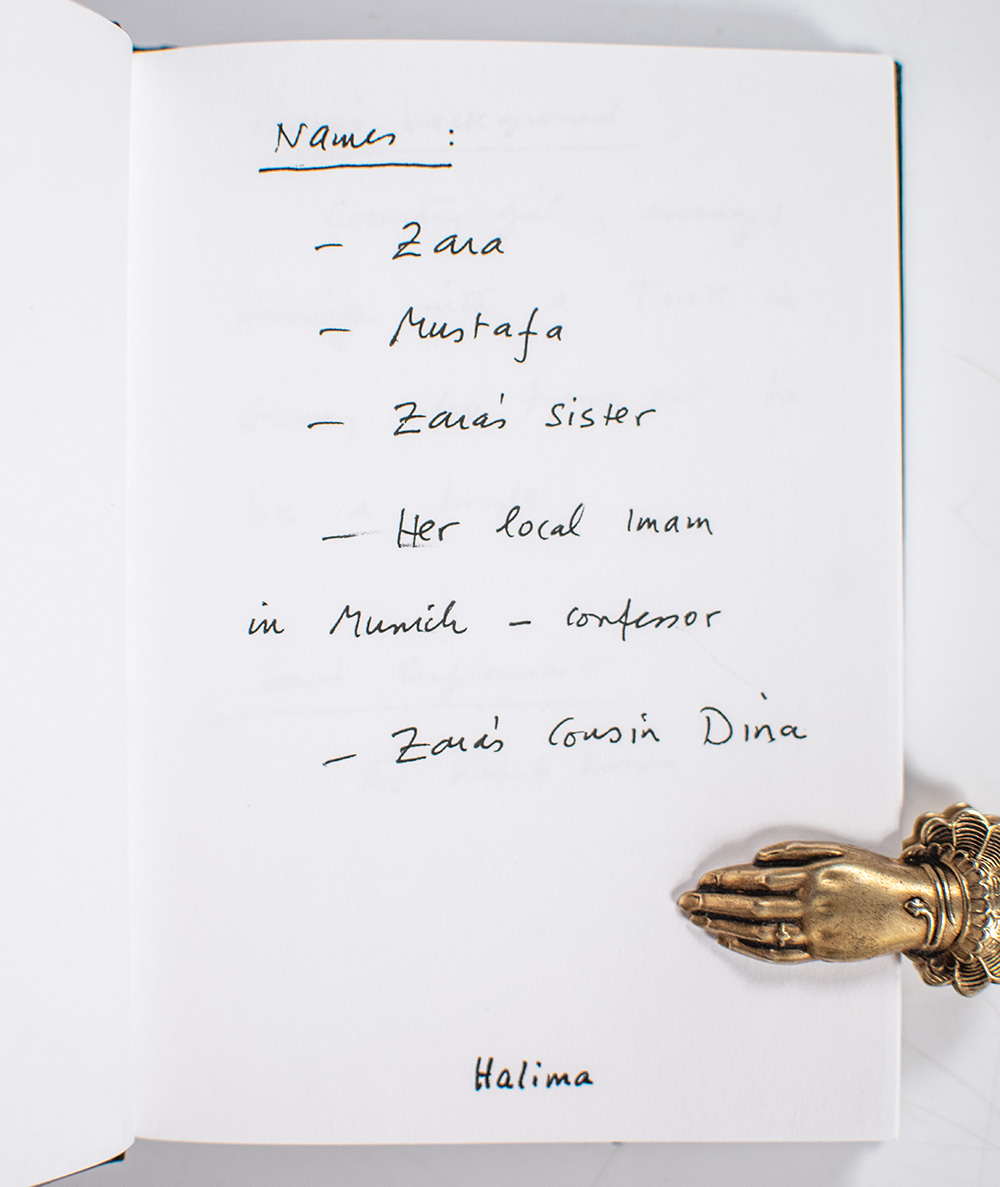 Names :
- Zara
- Mustafa
- Zara's sister
- Her local Imam
in Munich - confessor
- Zara's Cousin Dina
Halima